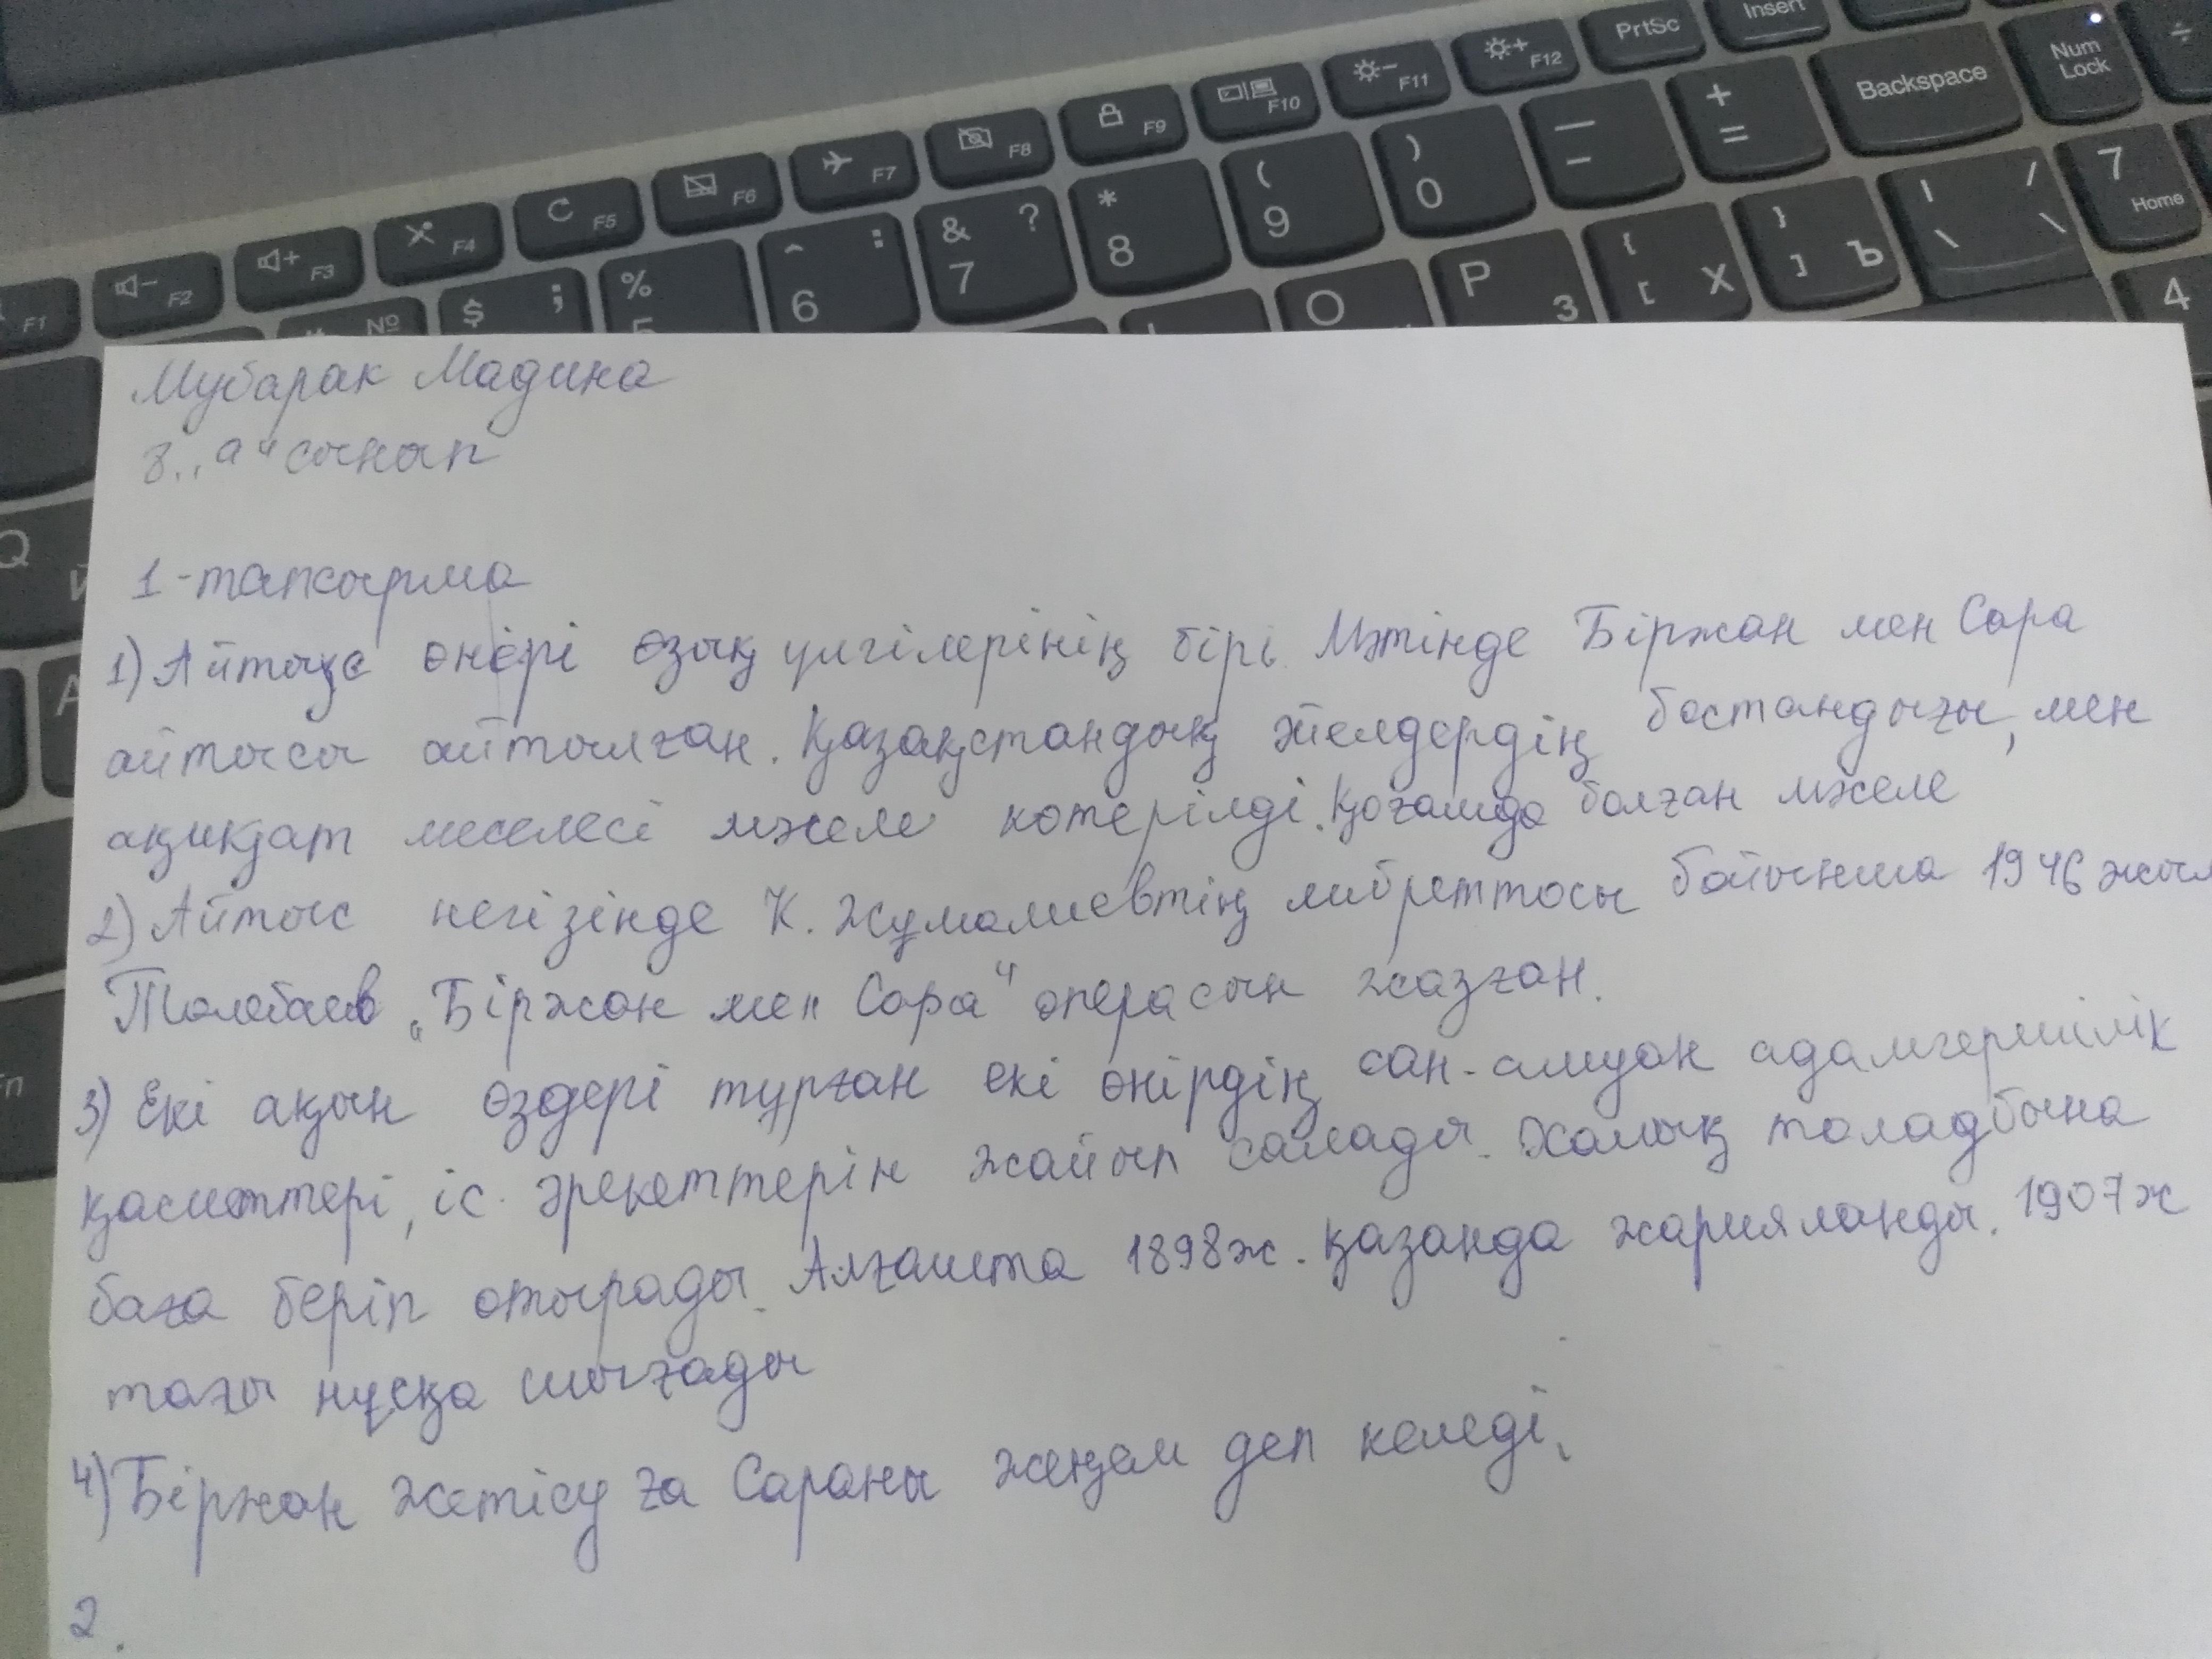 PrtSc Insert
F12 Backspace Num Lock ÷
F11 + =
F10 — − 7 Home
F9 ) 0 | / \ \
F8 ( 9 } ] Ъ 4
F7 * 8 { [ Х
F6 & ? 7 P З
F5 ^ : 6 O
F4 % 5
F3 $ ;
F2 №
F1
Q Й
A
Fn
Мубарак Мадина
8 „а" сынып
1-тапсырма
1) Айтыс өнері озық үлгілерінің бірі. Мәтінде Біржан мен Сара
айтысы айтылған. Қазақстандық әйелдердің бостандығы, мен
ақиқат меселесі мәселе көтерілді. Қоғамда болған мәселе
2) Айтыс негізінде Қ. Жұмалиевтің либреттосы бойынша 1946 жыл
Төлебаев „Біржан мен Сара" операсын жазған.
3) Екі ақын өздері тұрған екі өнірдің сан-алуан адамгершілік
қасиеттері, іс-әрекеттерін жайып салады. Халық таладбына
баға беріп отырады. Алғашта 1898ж. қазанда жарияланды. 1907ж
тағы нұсқа шығады
4) Біржан Жетісу ға Сараны жеңем деп келеді.
2.